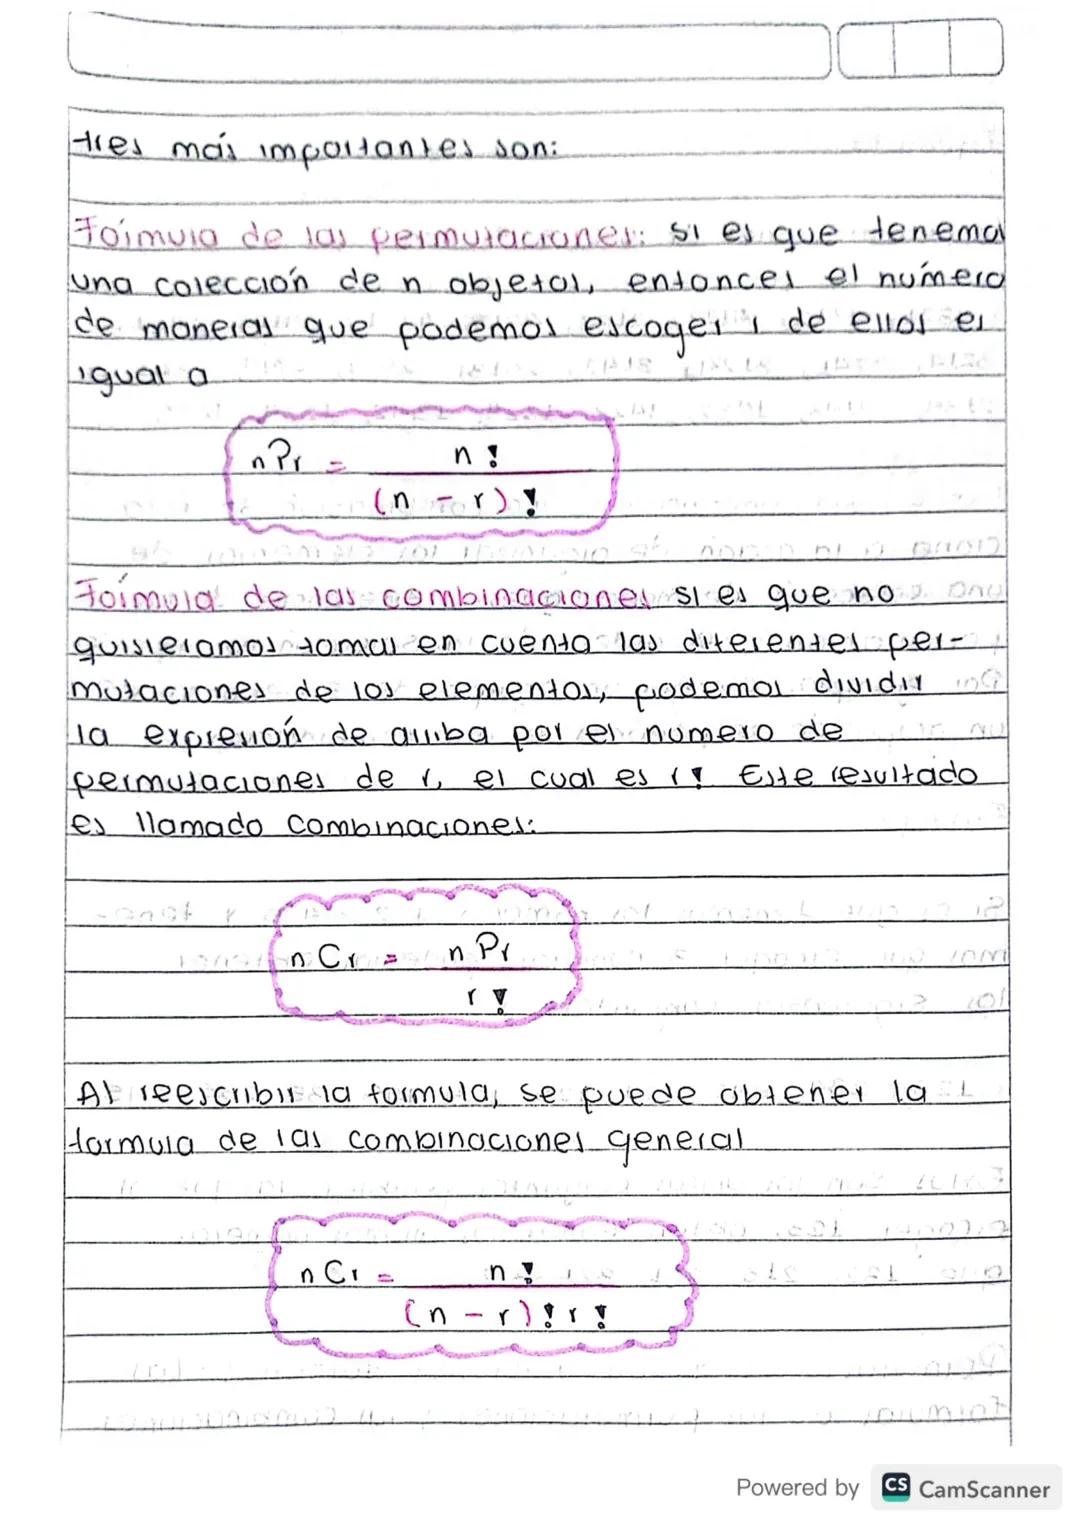 tres más importantes son:
Fórmula de las permutaciones: si es que tenemos
una colección de n objetos, entonces el número
de maneras que podemos escoger r de ellos es
igual a
nPr = n!
(n - r)!
Fórmula de las combinaciones si es que no
quisieramos tomar en cuenta las diferentes per-
mutaciones de los elementos, podemos dividir
la expresión de arriba por el numero de
permutaciones de r, el cual es r! Este resultado
es llamado combinaciones:
nCr = nPr
r!
Al reescribir la formula, se puede obtener la
formula de las combinaciones general
nCr = n!
(n - r)! r!
Powered by CS CamScanner